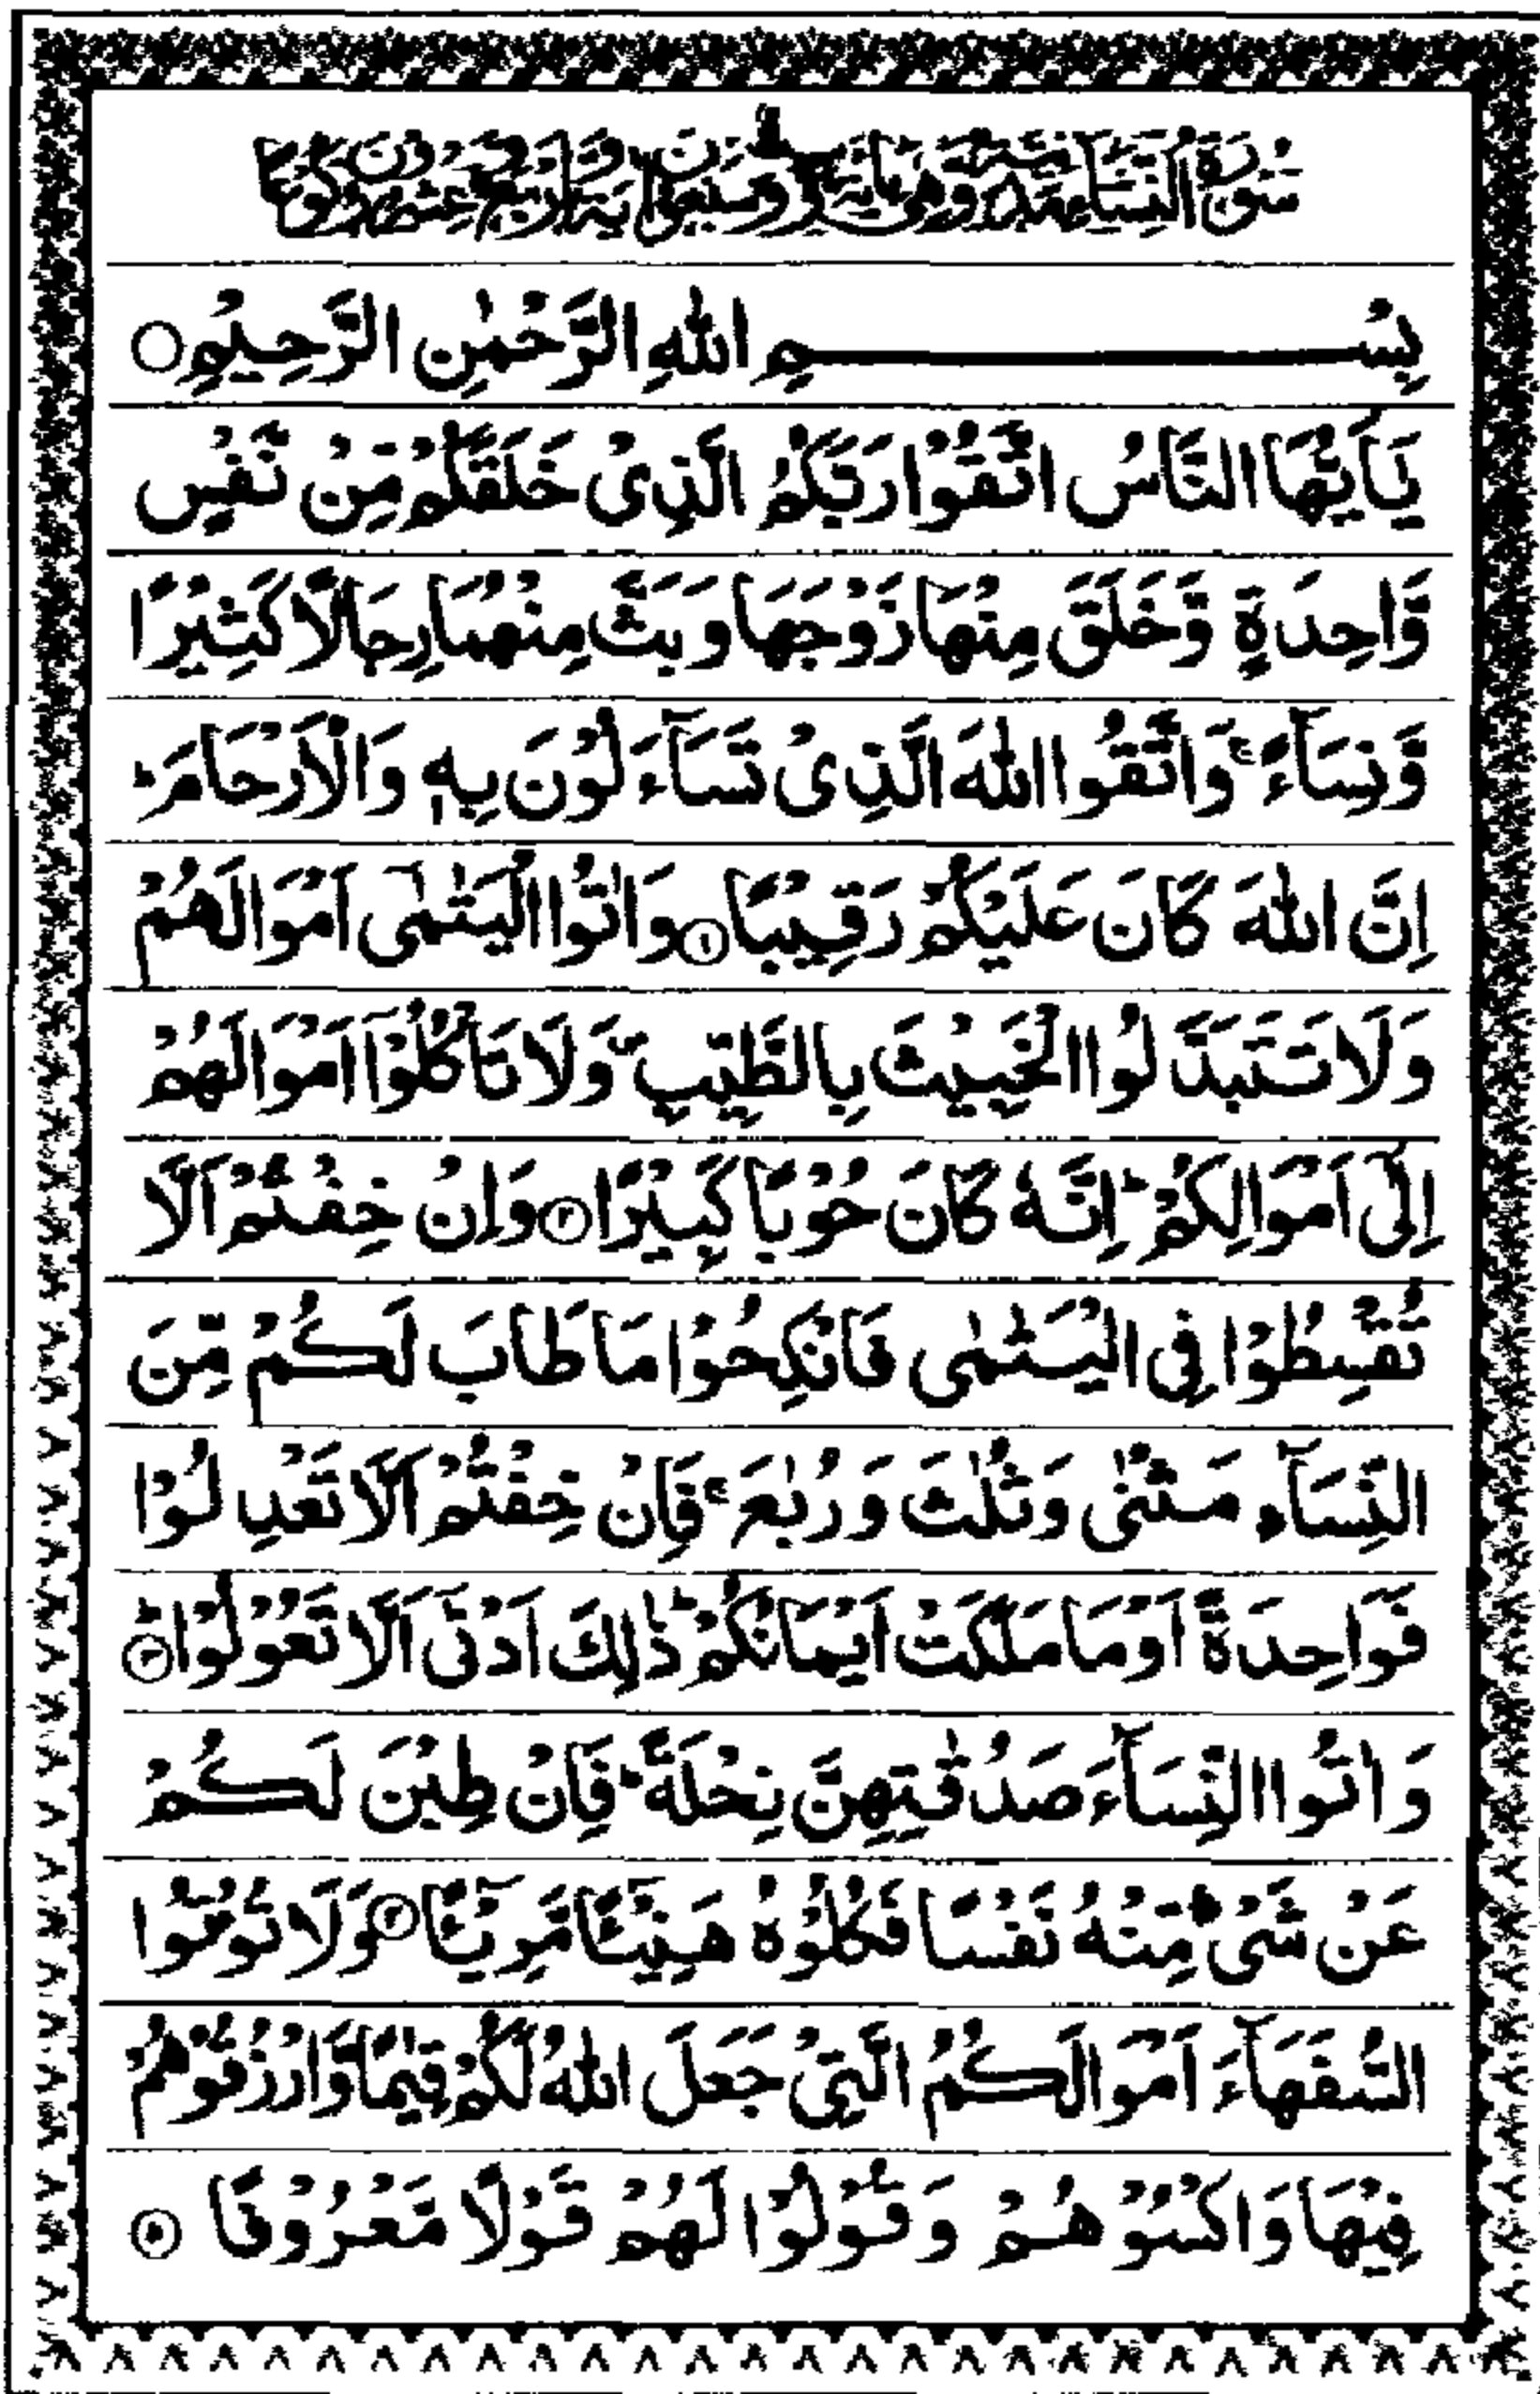 سُوْرَةُ النِّسَآءِ مَدَنِيَّةٌ وَّهِيَ مِائَةٌ وَّ سَبْعُوْنَ اٰيَةً وَّاَرْبَعٌ وَّعِشْرُوْنَ رُكُوْعًا
بِسْمِ اللّٰهِ الرَّحْمٰنِ الرَّحِيْمِ ○
يٰۤاَيُّهَا النَّاسُ اتَّقُوْا رَبَّكُمُ الَّذِىْ خَلَقَكُمْ مِّنْ نَّفْسٍ
وَّاحِدَةٍ وَّخَلَقَ مِنْهَا زَوْجَهَا وَبَثَّ مِنْهُمَا رِجَالًا كَثِيْرًا
وَّنِسَآءً ۚ وَاتَّقُوا اللّٰهَ الَّذِىْ تَسَآءَلُوْنَ بِهٖ وَالْاَرْحَامَ ؕ
اِنَّ اللّٰهَ كَانَ عَلَيْكُمْ رَقِيْبًا ① وَاٰتُوا الْيَتٰمٰٓى اَمْوَالَهُمْ
وَلَا تَتَبَدَّلُوا الْخَبِيْثَ بِالطَّيِّبِ ۪ وَلَا تَاْكُلُوْۤا اَمْوَالَهُمْ
اِلٰٓى اَمْوَالِكُمْ ؕ اِنَّهٗ كَانَ حُوْبًا كَبِيْرًا ② وَاِنْ خِفْتُمْ اَلَّا
تُقْسِطُوْا فِى الْيَتٰمٰى فَانْكِحُوْا مَا طَابَ لَكُمْ مِّنَ
النِّسَآءِ مَثْنٰى وَثُلٰثَ وَرُبٰعَ ۚ فَاِنْ خِفْتُمْ اَلَّا تَعْدِلُوْا
فَوَاحِدَةً اَوْ مَا مَلَكَتْ اَيْمَانُكُمْ ؕ ذٰلِكَ اَدْنٰٓى اَلَّا تَعُوْلُوْا ؕ ③
وَاٰتُوا النِّسَآءَ صَدُقٰتِهِنَّ نِحْلَةً ؕ فَاِنْ طِبْنَ لَكُمْ
عَنْ شَىْءٍ مِّنْهُ نَفْسًا فَكُلُوْهُ هَنِيْٓئًا مَّرِيْٓئًا ④ وَلَا تُؤْتُوا
السُّفَهَآءَ اَمْوَالَكُمُ الَّتِىْ جَعَلَ اللّٰهُ لَكُمْ قِيٰمًا وَّارْزُقُوْهُمْ
فِيْهَا وَاكْسُوْهُمْ وَقُوْلُوْا لَهُمْ قَوْلًا مَّعْرُوْفًا ⑤